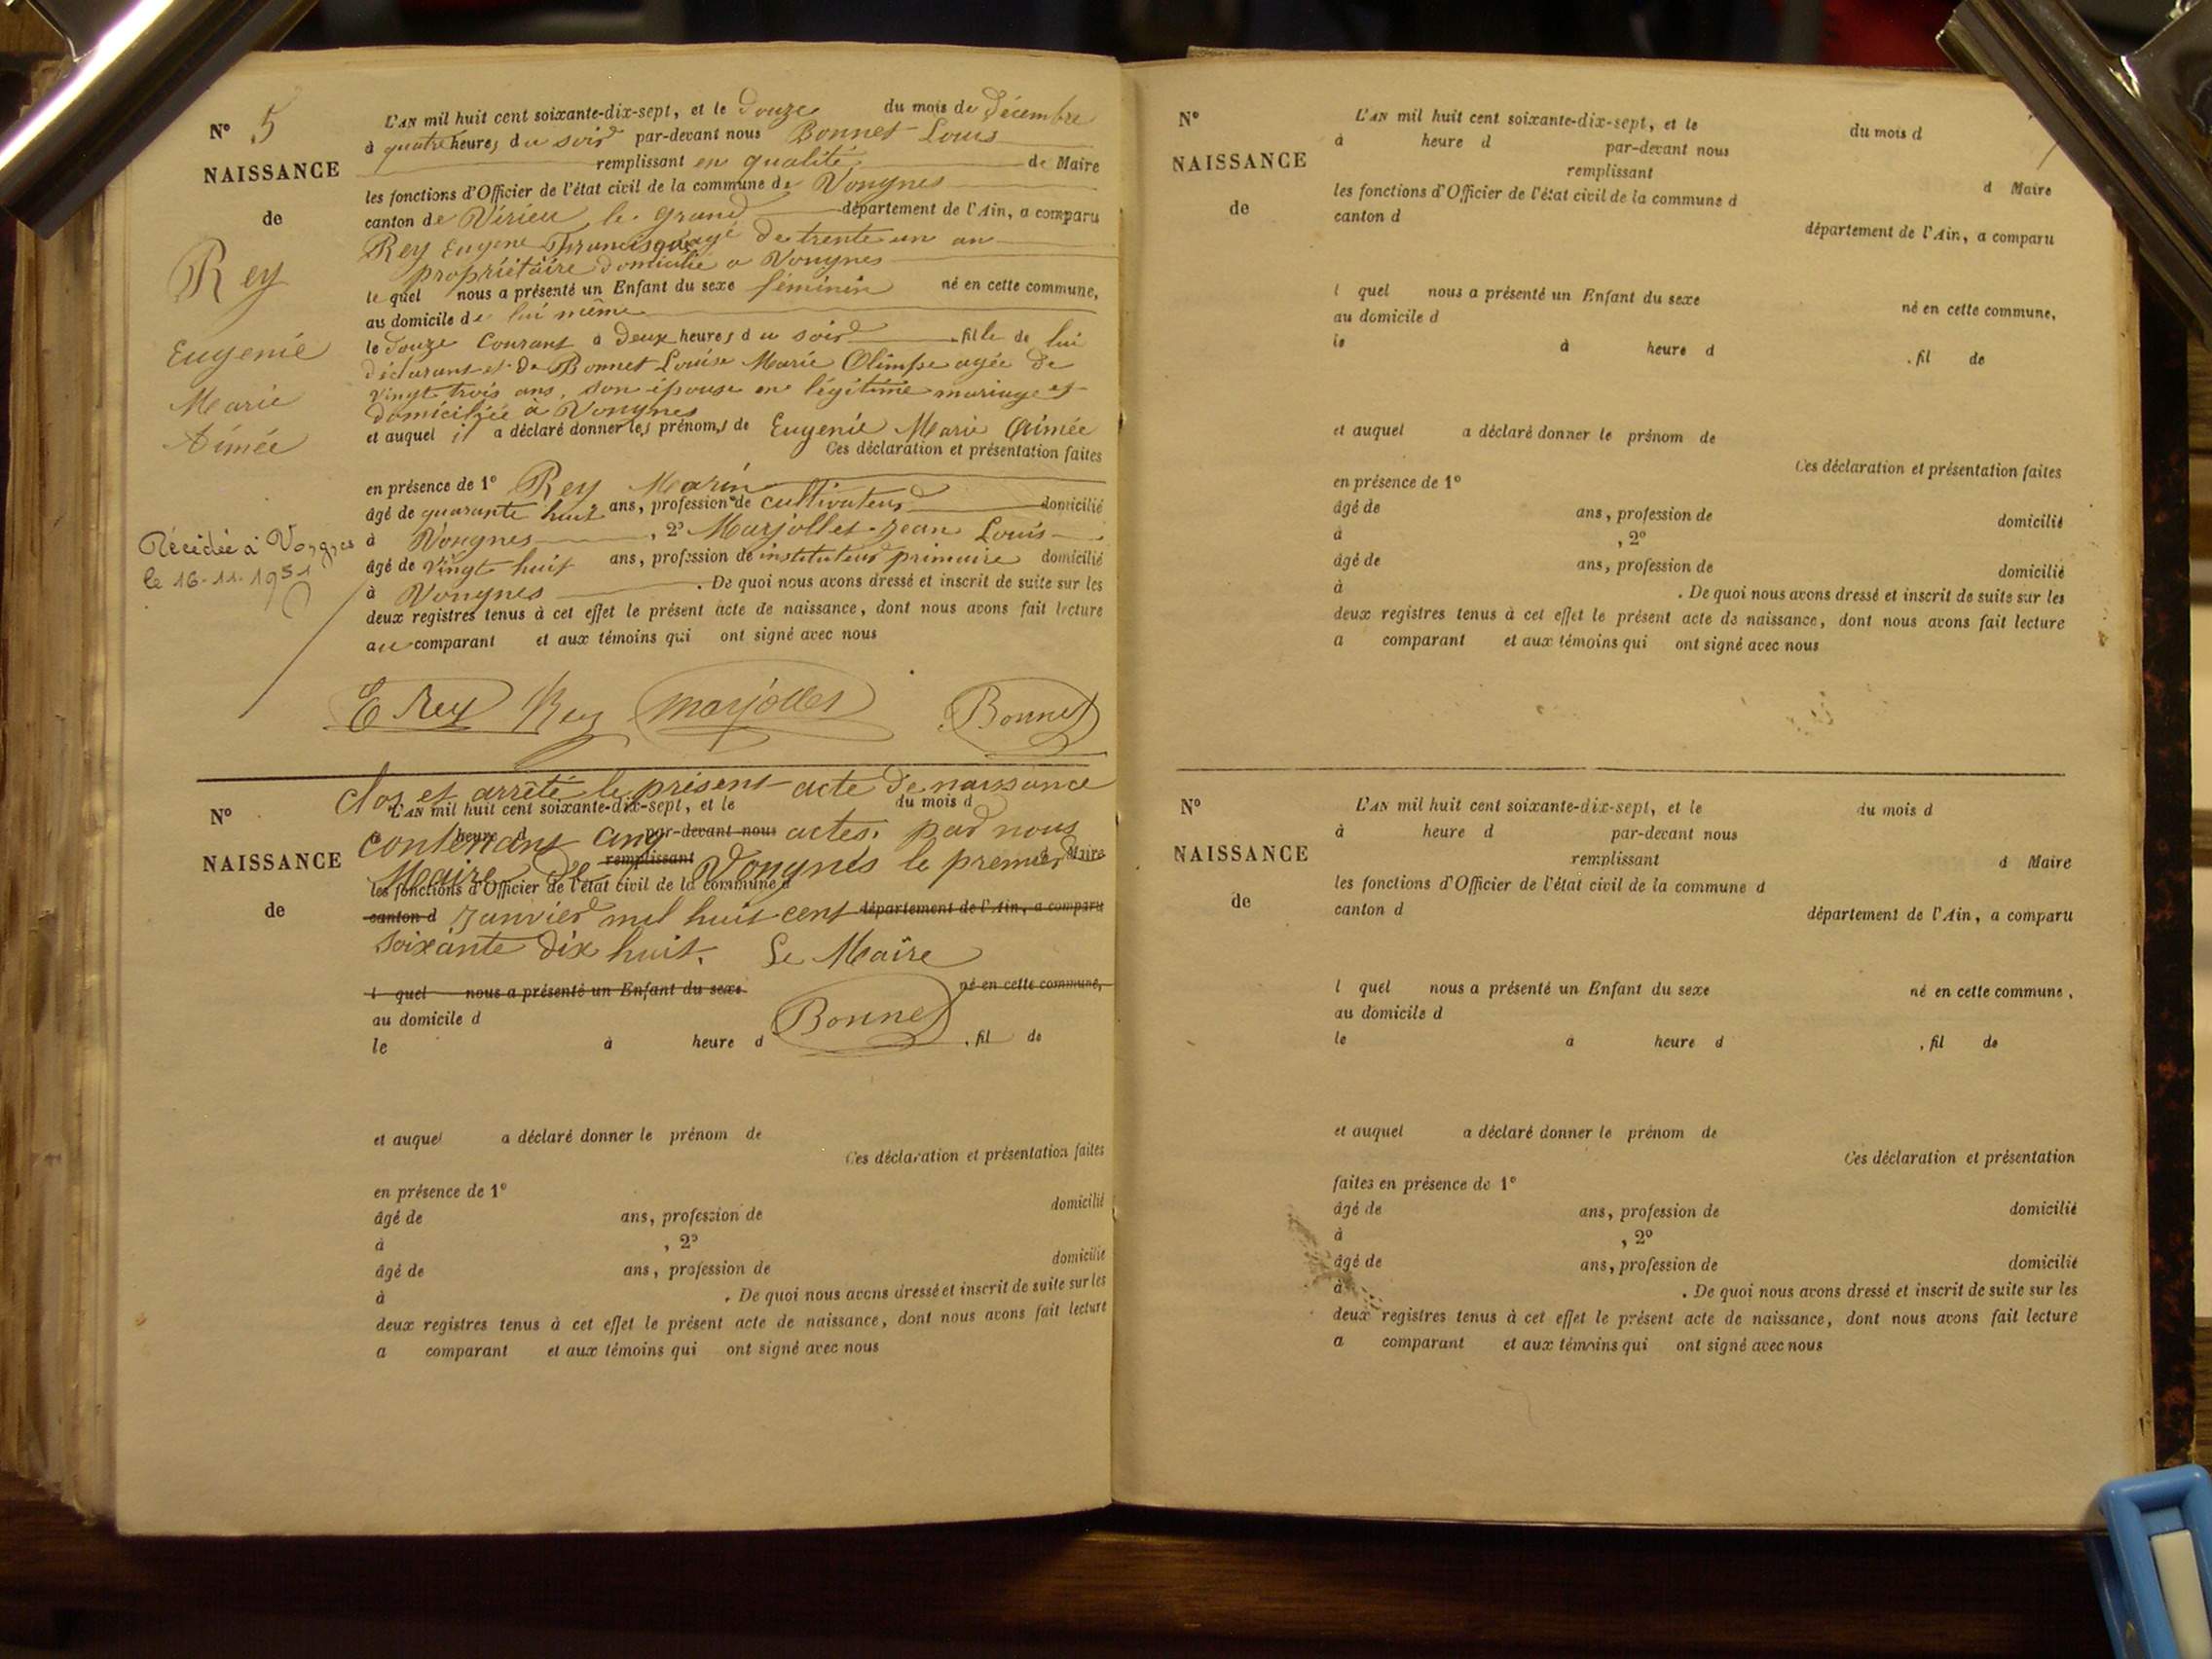 N° 5
NAISSANCE
de
Rey
Eugenie
Marie
Aimée
Décédée à Vongnes
le 16-11-1951
L'AN mil huit cent soixante-dix-sept, et le douze du mois de Décembre
à quatre heures du soir par-devant nous Bonnet Louis
remplissant en qualité de Maire
les fonctions d'Officier de l'état civil de la commune de Vongnes
canton de Virieu le grand département de l'Ain, a comparu
Rey Eugene agé de trente un an
propriétaire domicilié a Vongnes
le quel nous a présenté un Enfant du sexe féminin né en cette commune,
au domicile de lui même
le douze Courant à deux heures du soir fille de lui
déclarant et de Bonnet Louise Marie Olimpe agée de
vingt trois ans, son épouse en légitime mariage et
domiciliée à Vongnes
et auquel il a déclaré donner les prénoms de Eugenie Marie Aimée
Ces déclaration et présentation faites
en présence de 1° Rey Marin
âgé de quarante huit ans, profession de cultivateur domicilié
à Vongnes, 2° Marjollet Jean Louis
âgé de vingt huit ans, profession de instituteur primaire domicilié
à Vongnes. De quoi nous avons dressé et inscrit de suite sur les
deux registres tenus à cet effet le présent acte de naissance, dont nous avons fait lecture
au comparant et aux témoins qui ont signé avec nous
E Rey Rey Marjollet Bonnet
N°
NAISSANCE
de
Clos et arrêté le présent acte de naissance
L'AN mil huit cent soixante-dix-sept, et le du mois d
contenant cinq actes, par nous
heure d par-devant nous
Maire de Vongnes le premier
remplissant d Maire
les fonctions d'Officier de l'état civil de la commune d
canton d Janvier mil huit cent département de l'Ain, a comparu
soixante dix huit. Le Maire
l quel nous a présenté un Enfant du sexe né en cette commune,
Bonnet
au domicile d
le à heure d . fil de
et auquel a déclaré donner le prénom de
Ces déclaration et présentation faites
en présence de 1°
âgé de ans, profession de domicilié
à , 2°
âgé de ans, profession de domicilié
à . De quoi nous avons dressé et inscrit de suite sur les
deux registres tenus à cet effet le présent acte de naissance, dont nous avons fait lecture
a comparant et aux témoins qui ont signé avec nous
N°
NAISSANCE
de
L'AN mil huit cent soixante-dix-sept, et le du mois d
à heure d par-devant nous
remplissant d Maire
les fonctions d'Officier de l'état civil de la commune d
canton d département de l'Ain, a comparu
l quel nous a présenté un Enfant du sexe né en cette commune,
au domicile d
le à heure d . fil de
et auquel a déclaré donner le prénom de
Ces déclaration et présentation faites
en présence de 1°
âgé de ans, profession de domicilié
à , 2°
âgé de ans, profession de domicilié
à . De quoi nous avons dressé et inscrit de suite sur les
deux registres tenus à cet effet le présent acte de naissance, dont nous avons fait lecture
a comparant et aux témoins qui ont signé avec nous
N°
NAISSANCE
de
L'AN mil huit cent soixante-dix-sept, et le du mois d
à heure d par-devant nous
remplissant d Maire
les fonctions d'Officier de l'état civil de la commune d
canton d département de l'Ain, a comparu
l quel nous a présenté un Enfant du sexe né en cette commune,
au domicile d
le à heure d , fil de
et auquel a déclaré donner le prénom de
Ces déclaration et présentation
faites en présence de 1°
âgé de ans, profession de domicilié
à , 2°
âgé de ans, profession de domicilié
à . De quoi nous avons dressé et inscrit de suite sur les
deux registres tenus à cet effet le présent acte de naissance, dont nous avons fait lecture
a comparant et aux témoins qui ont signé avec nous